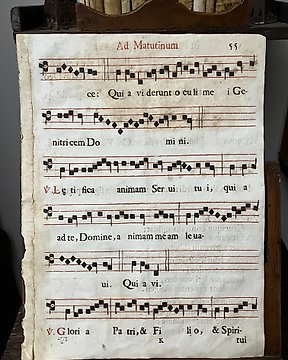 Ad Matutinum 55
ce: Qui a viderunt oculi me i Ge-
nitricem Do mini.
℣. Lętifica animam Serui tui, quia
ad te, Domine, a nimam meam leua-
ui. Quia vi.
℣. Glori a Patri, & Fi lio, & Spiri-
K tui